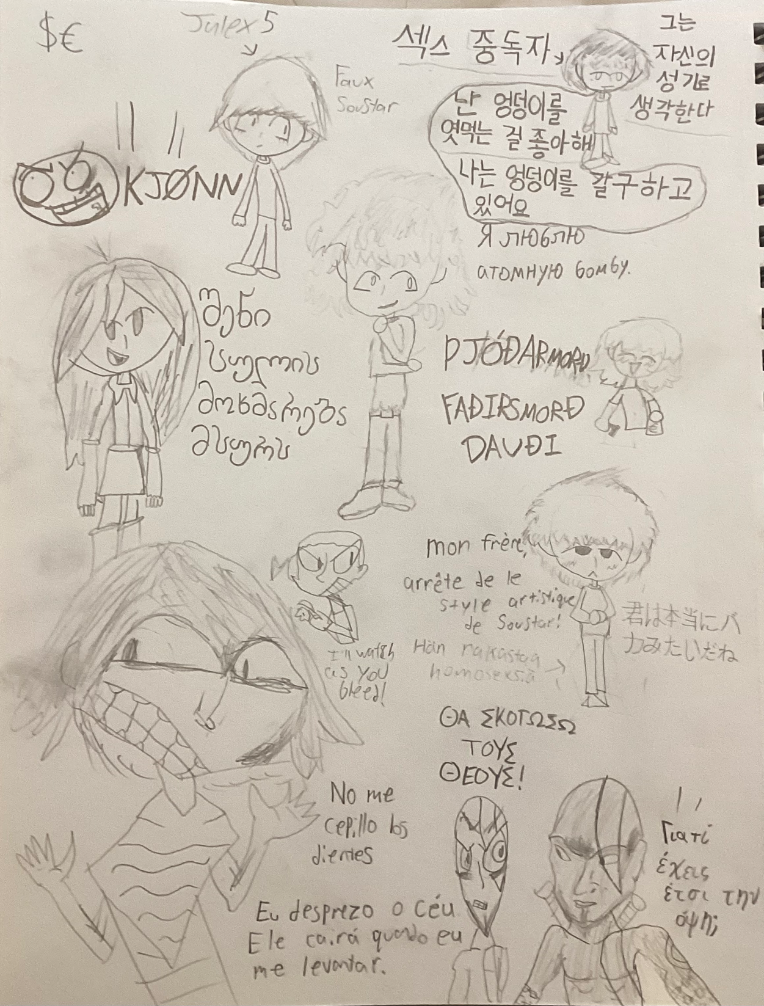 $€
Julex5
Faux
Soustar
섹스 중독자
그는
자신의
성기로
생각한다
난 엉덩이를
엿먹는 걸 좋아해
나는 엉덩이를 갈구하고
있어요
KJØNN
Я люблю
атомную бомбу.
შენი
სულის
მოხმარება
მსურს
ÞJÓÐARMORÐ
FAÐIRSMORÐ
DAUÐI
mon frère,
arrête de le
style artistique
de Soustar!
君は本当にバ
カみたいだね
Hän rakastaa
homoseksiä
I'll watch
as you
bleed!
ΘΑ ΣΚΟΤΩΣΩ
ΤΟΥΣ
ΘΕΟΥΣ!
No me
cepillo los
dientes
Γιατί
έχεις
έτσι την
όψη;
Eu desprezo o céu
Ele cairá quando eu
me levantar.